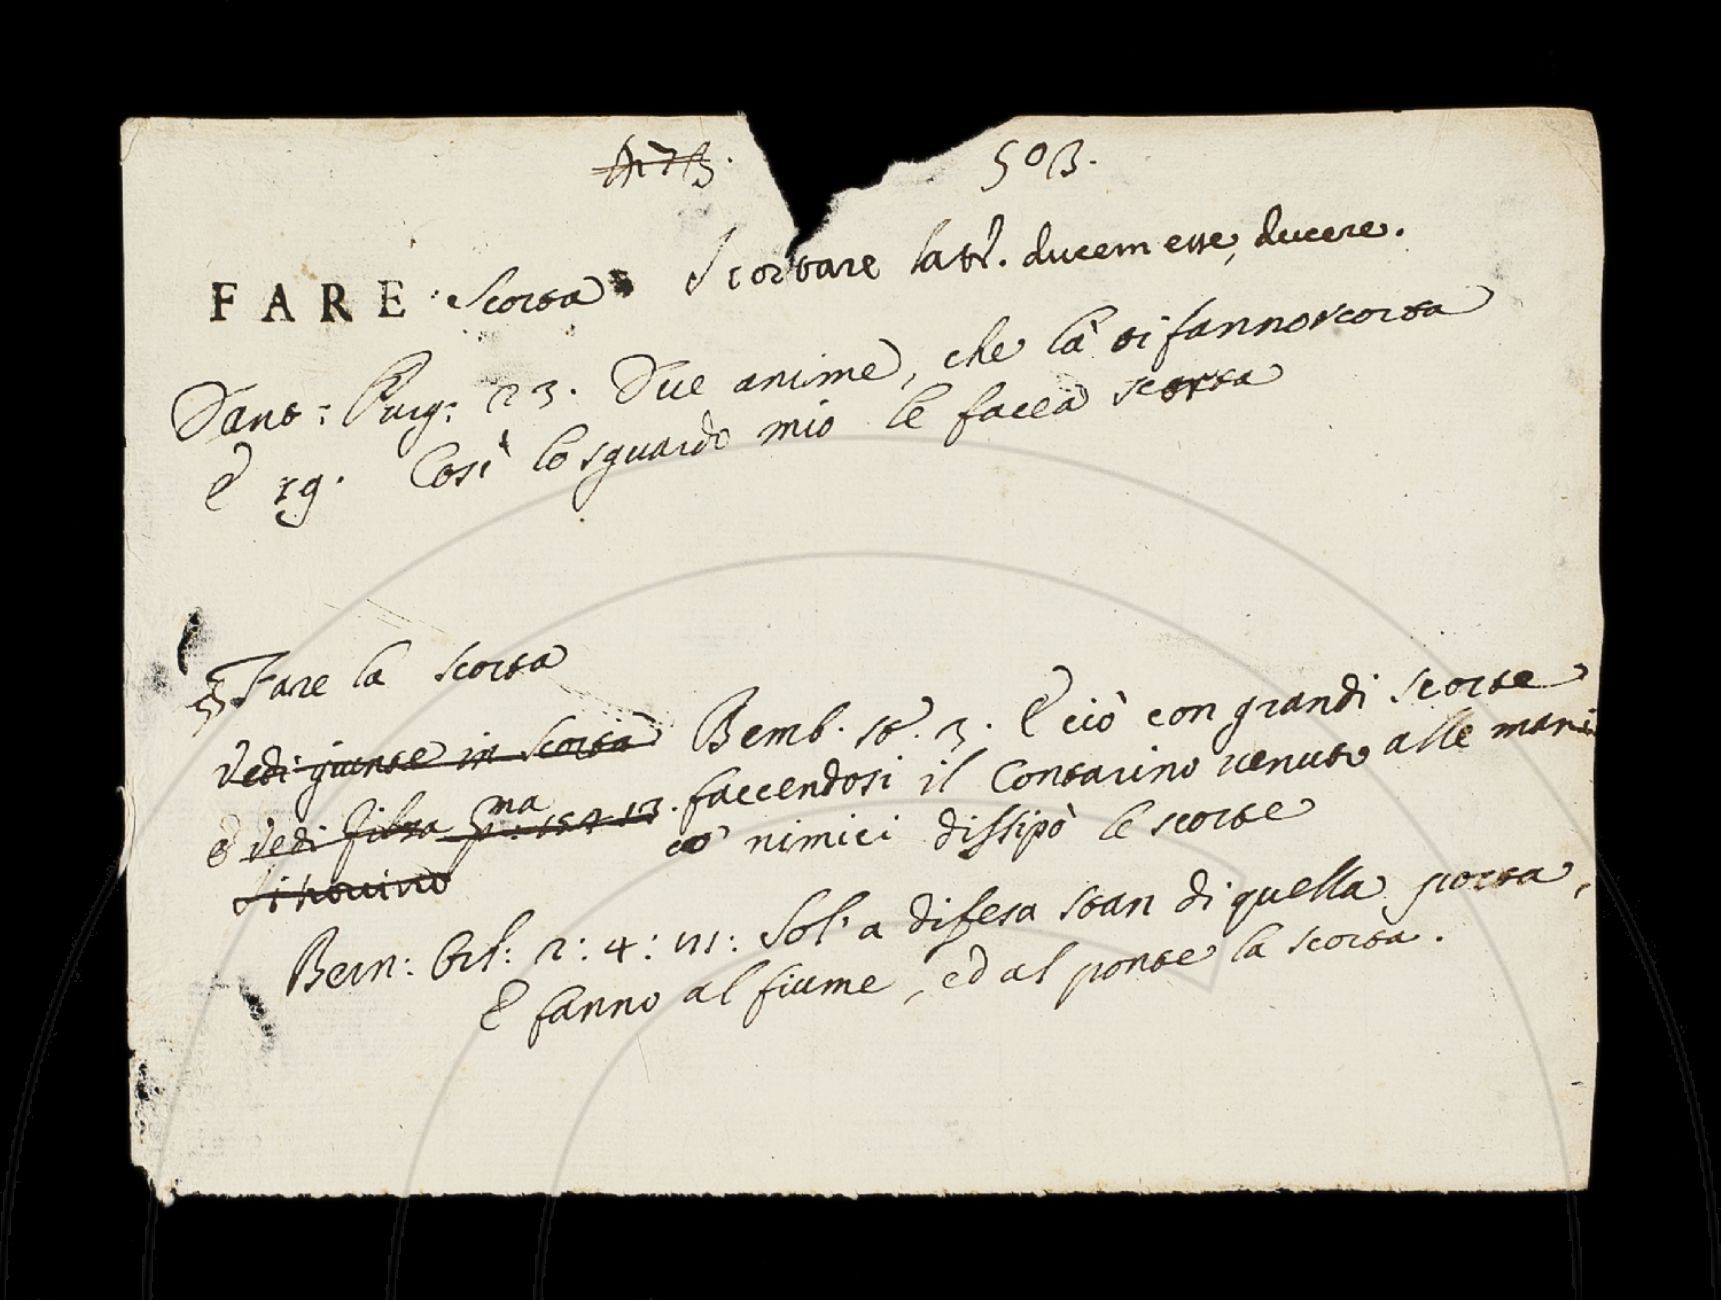 503.
FARE Scorta Scortare lat. ducem esse, ducere.
Dant: Purg: 23. Due anime, che là ti fanno scorta
E 19. Così lo sguardo mio le facea scorta
Fare la scorta
Vedi giunte in Scorta Bemb. st. 3. E ciò con grandi scorte
e vedi filza pma: faccendosi il Contarino venuto alle mani
co' nimici dissipò le scorte
Bern: Orl: 2: 4: Sol' a difesa stan di quella porta,
E fanno al fiume, ed al ponte la scorta.